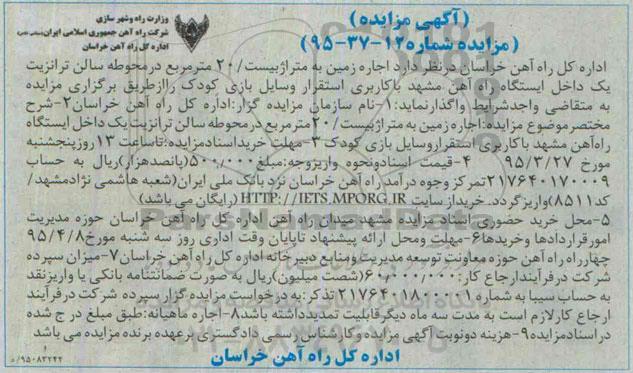 (آگهی مزایده)
(مزایده شماره۱۲-۳۷-۹۵)
وزارت راه وشهر سازی
شرکت راه آهن جمهوری اسلامی ایران
اداره کل راه آهن خراسان
اداره کل راه آهن خراسان درنظر دارد اجاره زمین به متراژبیست/۲۰ مترمربع درمحوطه سالن ترانزیت
یک داخل ایستگاه راه آهن مشهد باکاربری استقرار وسایل بازی کودک راازطریق برگزاری مزایده
به متقاضی واجدشرایط واگذارنماید:۱-نام سازمان مزایده گزار:اداره کل راه آهن خراسان۲-شرح
مختصرموضوع مزایده:اجاره زمین به متراژبیست/۲۰مترمربع درمحوطه سالن ترانزیت یک داخل ایستگاه
راه آهن مشهد باکاربری استقراروسایل بازی کودک ۳-مهلت خریداسنادمزایده:تاساعت ۱۳روزپنجشنبه
مورخ ۹۵/۳/۲۷ ۴-قیمت اسنادونحوه واریزوجه:مبلغ۵۰۰/۰۰۰(پانصدهزار)ریال به حساب
۲۱۷۶۴۰۱۷۰۰۰۹تمرکز وجوه درآمد راه آهن خراسان نزد بانک ملی ایران(شعبه هاشمی نژادمشهد/
کد۸۵۱۱)واریزگردد. خریداز سایت HTTP://IETS.MPORG.IR(رایگان می باشد)
۵-محل خرید حضوری اسناد مزایده: مشهد میدان راه آهن اداره کل راه آهن خراسان حوزه مدیریت
امورقراردادها وخریدها۶-مهلت ومحل ارائه پیشنهاد تاپایان وقت اداری روز سه شنبه مورخ۹۵/۴/۸
چهارراه راه آهن حوزه معاونت توسعه مدیریت ومنابع دبیرخانه اداره کل راه آهن خراسان۷-میزان سپرده
شرکت درفرآیندارجاع کار:۶۰/۰۰۰/۰۰۰(شصت میلیون)ریال به صورت ضمانتنامه بانکی یا واریزنقد
به حساب سیبا به شماره ۲۱۷۶۴۰۱۱۸۰۰۰۱ تذکر:به درخواست مزایده گزار سپرده شرکت درفرآیند
ارجاع کارلازم است به مدت سه ماه دیگرقابلیت تمدیدداشته باشد۸-اجاره ماهیانه:طبق مبلغ درج شده
در اسنادمزایده۹-هزینه دونوبت آگهی مزایده وکارشناس رسمی دادگستری برعهده برنده مزایده می باشد
اداره کل راه آهن خراسان
۹۵۰۸۳۲۴۲/د